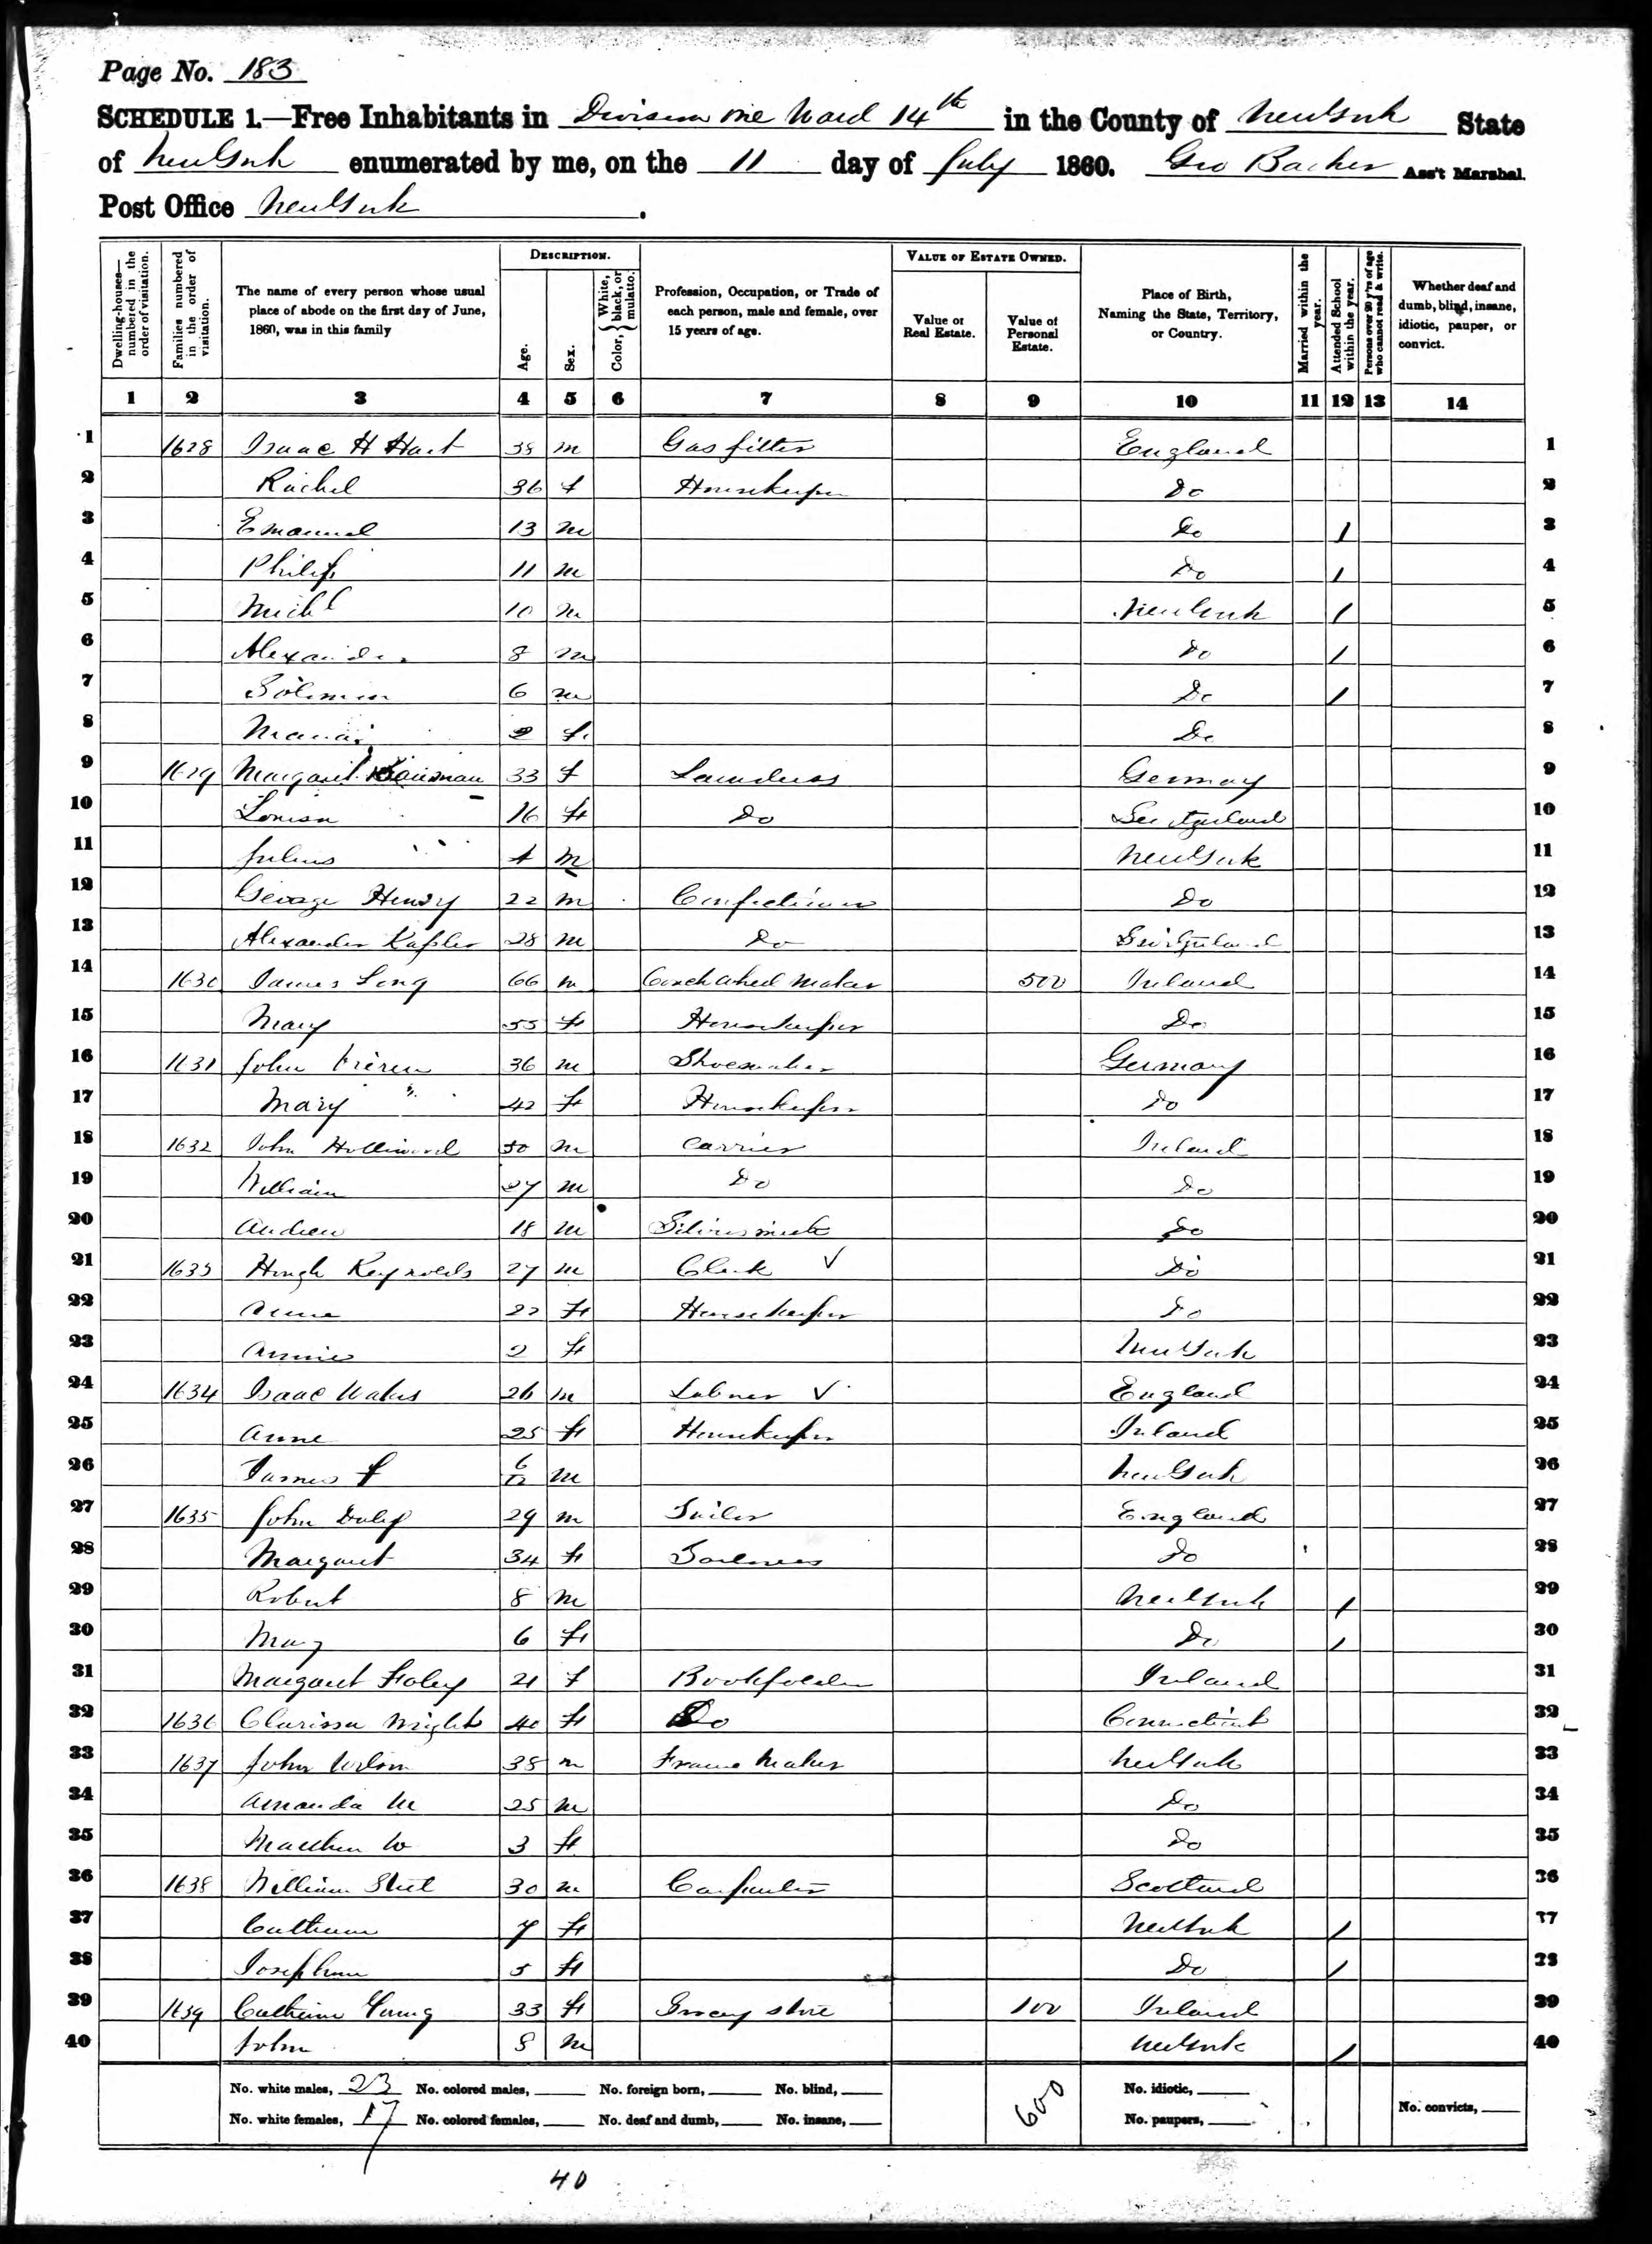 Page No. 183
SCHEDULE 1.—Free Inhabitants in Division one Ward 14th in the County of New York State
of New York enumerated by me, on the 11 day of July 1860. Geo Barker Ass't Marshal.
Post Office New York.
Dwelling-houses—numbered in the order of visitation.
Families numbered in the order of visitation.
The name of every person whose usual place of abode on the first day of June, 1860, was in this family
DESCRIPTION.
Age.
Sex.
Color, { White, black, or mulatto.
Profession, Occupation, or Trade of each person, male and female, over 15 years of age.
VALUE OF ESTATE OWNED.
Value of Real Estate.
Value of Personal Estate.
Place of Birth, Naming the State, Territory, or Country.
Married within the year.
Attended School within the year.
Persons over 20 y'rs of age who cannot read & write.
Whether deaf and dumb, blind, insane, idiotic, pauper, or convict.
1 2 3 4 5 6 7 8 9 10 11 12 13 14
1 1628 Isaac H Hart 38 m Gas fitter England 1
2 Rachel 36 f Housekeeper Do 2
3 Emanuel 13 m Do / 3
4 Philip 11 m Do / 4
5 Michl 10 m New York / 5
6 Alexander 8 m Do / 6
7 Solomon 6 m Do / 7
8 2 f Do 8
9 1629 Margaret 33 f Laundress Germay 9
10 Louisa 16 f Do 10
11 Julius 4 m New York 11
12 George Henry 22 m Confectioner Do 12
13 Alexander Kapler 28 m Do 13
14 1630 James Long 66 m Coach wheel Maker 500 Ireland 14
15 Mary 55 f Housekeeper Do 15
16 1631 John 36 m Shoemaker Germany 16
17 Mary " 42 f Housekeeper Do 17
18 1632 John Holliwood 50 m Carrier Ireland 18
19 William 27 m Do Do 19
20 Andrew 18 m Silversmith Do 20
21 1633 Hugh Reynolds 27 m Clerk ✓ Do 21
22 Anne 22 f Housekeeper Do 22
23 Annie 2 f New York 23
24 1634 Isaac Wales 26 m Laborer ✓ England 24
25 Anne 25 f Housekeeper Ireland 25
26 James F 6/12 m New York 26
27 1635 John Daly 29 m Tailor England 27
28 Margaret 34 f Tailoress Do 28
29 Robert 8 m New York / 29
30 Mary 6 f Do / 30
31 Margaret Foley 21 f Bookfolder Ireland 31
32 1636 Clarissa Wright 40 f Do Connecticut 32
33 1637 John Wilson 38 m Frame Maker New York 33
34 Amanda M 25 m Do 34
35 Matthew W 3 f Do 35
36 1638 William 30 m Carpenter Scotland 36
37 Catherine 7 f New York / 37
38 Josephine 5 f Do / 38
39 1639 Catherine Young 33 f Grocery store 100 Ireland 39
40 John 8 m New York / 40
No. white males, 23 No. colored males, No. foreign born, No. blind, No. idiotic,
No. white females, 17 No. colored females, No. deaf and dumb, No. insane, 600 No. paupers, No. convicts,
40